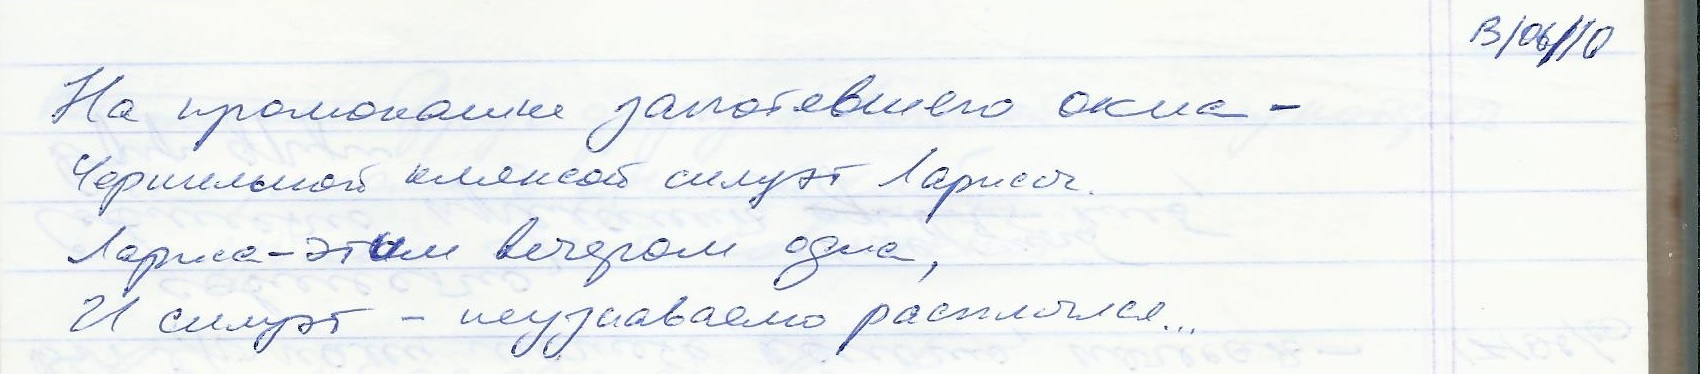 13/06/10
На промокашке запотевшего окна –
Чернильной кляксой силуэт Ларисы.
Лариса – этим вечером одна,
И силуэт – неузнаваемо расплылся...